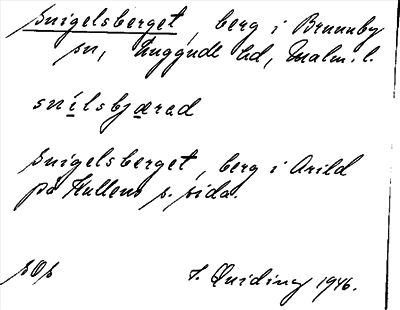 Snigelsberget, berg i Brunnby
sn, Luggude hd, Malm. l.
snílsbjærad
Snigelsberget, berg i Arild
på Kullens s. sida.
sOs
J. Quiding 1946.